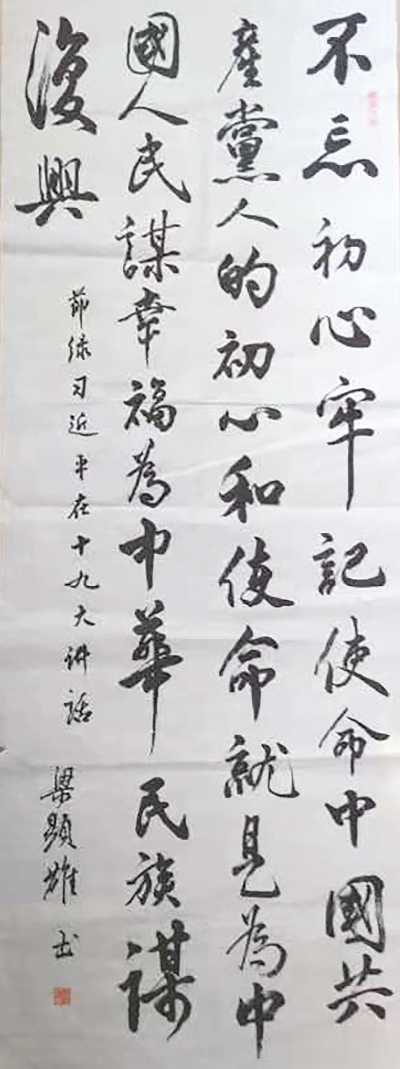 不忘初心牢記使命中國共
產黨人的初心和使命就是為中
國人民謀幸福為中華民族謀
復興
節录习近平在十九大讲話
梁顯雄書